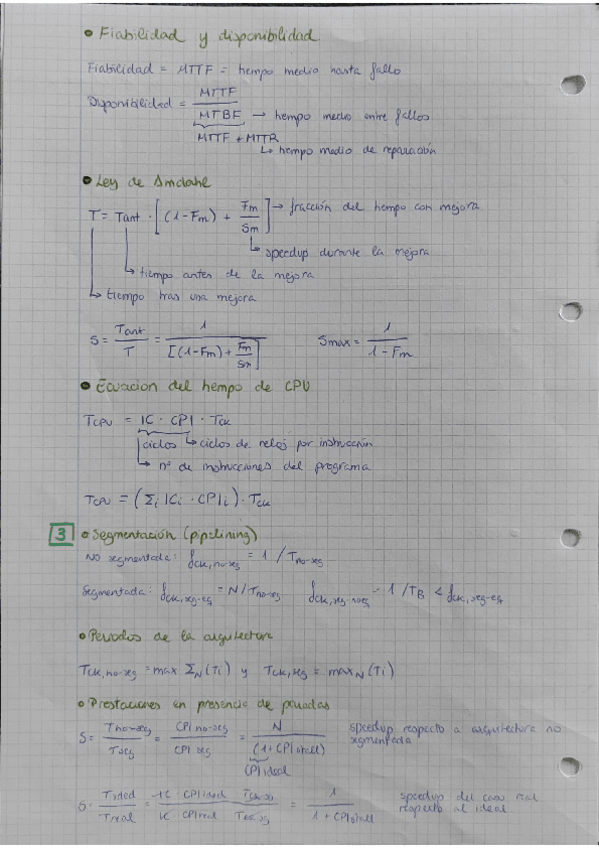 • Fiabilidad y disponibilidad
Fiabilidad = MTTF = tiempo medio hasta fallo
Disponibilidad = MTTF / MTBF → tiempo medio entre fallos
MTTF + MTTR
↳ tiempo medio de reparación
• Ley de Amdahl
T = Tant · [(1-Fm) + Fm/Sm] → fracción del tiempo con mejora
↳ speedup durante la mejora
↳ tiempo antes de la mejora
↳ tiempo tras una mejora
S = Tant/T = 1/[(1-Fm) + Fm/Sm] Smax = 1/(1-Fm)
• Ecuacion del tiempo de CPU
TCPU = IC · CPI · Tck
ciclos ↳ ciclos de reloj por instrucción
↳ nº de instrucciones del programa
TCPU = (Σi ICi · CPIi) · Tck
3 • Segmentación (pipelining)
No segmentada: fck,no-seg = 1 / Tno-seg
Segmentada: fck,seg-eq = N/Tno-seg fck,seg-noeq = 1/TB < fck,seg-eq
• Periodos de la arquitectura
Tck,no-seg = max ΣN(Ti) y Tck,seg = maxN(Ti)
• Prestaciones en presencia de paradas
S = Tno-seg/Tseg = CPI no-seg/CPI seg = N/(1+CPI stall) speedup respecto a arquitectura no
segmentada
CPI ideal
S = Tideal/Treal = IC · CPI ideal · / IC · CPI real · = 1/(1+CPI stall) speedup del caso real
respecto al ideal